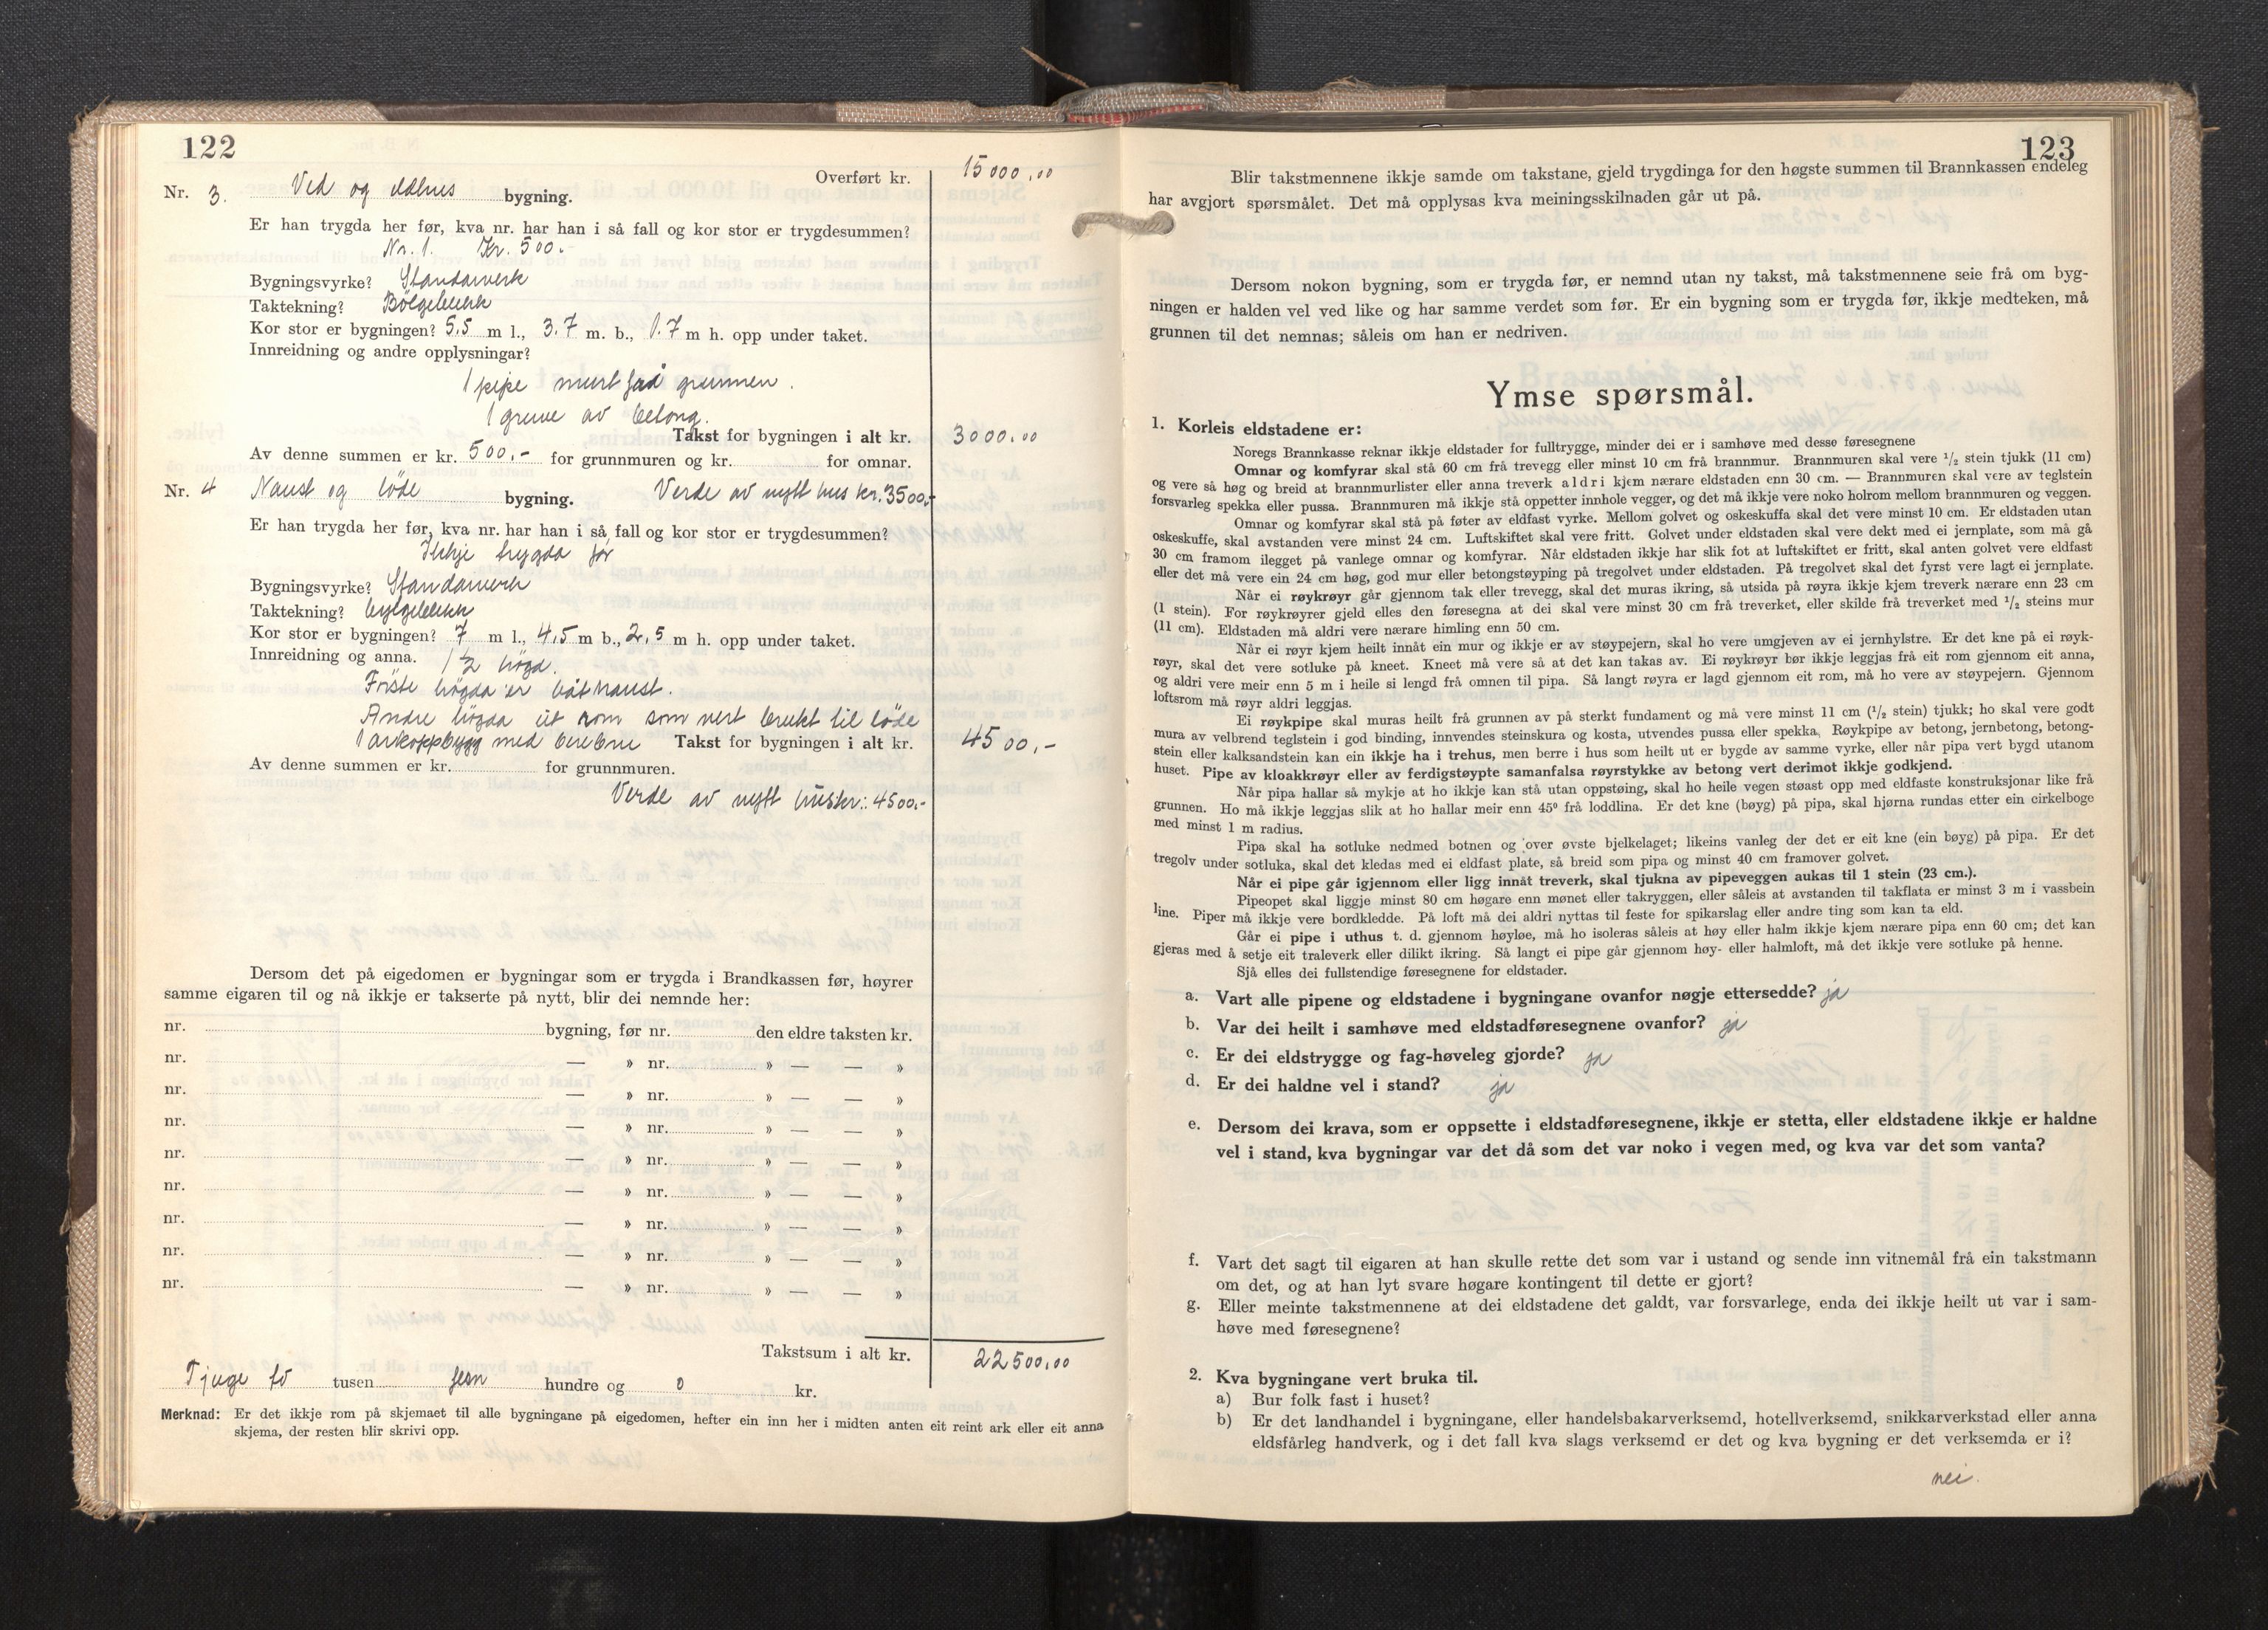 122
Overført kr. 15000,00
Nr. 3. Ved og eldhus bygning.
Er han trygda her før, kva nr. har han i så fall og kor stor er trygdesummen?
Nr. 1. Kr. 500.
Bygningsvyrke? Standarverk
Taktekning? Bölgeblekk
Kor stor er bygningen? 5,5 m l., 3.7 m. b., 1.7 m h. opp under taket.
Innreidning og andre opplysningar?
1 pipe murt frå grunnen.
1 grue av betong.
Takst for bygningen i alt kr. 3000,00
Av denne summen er kr. 500,- for grunnmuren og kr. for omnar.
Nr. 4 Naust og löde bygning. Verde av nytt hus kr. 3500,-
Er han trygda her før, kva nr. har han i så fall og kor stor er trygdesummen?
Ikkje trygda før
Bygningsvyrke? Standarverk
Taktekning? bylgeblekk
Kor stor er bygningen? 7 m l., 4,5 m b., 2,5 m h. opp under taket.
Innreidning og anna. 1 ½ högd.
Förste högda er båtnaust.
Andre högda eit rom som vert brukt til löde
1 arkoppbygg med Takst for bygningen i alt kr. 4500,-
Av denne summen er kr. for grunnmuren.
Verde av nytt hus kr: 4500,-
Dersom det på eigedomen er bygningar som er trygda i Brandkassen før, høyrer
samme eigaren til og nå ikkje er takserte på nytt, blir dei nemnde her:
nr. bygning, før nr. den eldre taksten kr.
nr. — » nr. » — — »
nr. — » nr. » — — »
nr. — » nr. » — — »
nr. — » nr. » — — »
nr. — » nr. » — — »
nr. — » nr. » — — »
nr. — » nr. » — — »
nr. — » nr. » — — »
Takstsum i alt kr. 22500,00
Tjuge to tusen fem hundre og 0 kr.
Merknad: Er det ikkje rom på skjemaet til alle bygningane på eigedomen, hefter ein inn her i midten anten eit reint ark eller eit anna
skjema, der resten blir skrivi opp.
123
Blir takstmennene ikkje samde om takstane, gjeld trygdinga for den høgste summen til Brannkassen endeleg
har avgjort spørsmålet. Det må opplysas kva meiningsskilnaden går ut på.
Dersom nokon bygning, som er trygda før, er nemnd utan ny takst, må takstmennene seie frå om byg-
ningen er halden vel ved like og har samme verdet som før. Er ein bygning som er trygda før, ikkje medteken, må
grunnen til det nemnas; såleis om han er nedriven.
Ymse spørsmål.
1. Korleis eldstadene er:
Noregs Brannkasse reknar ikkje eldstader for fulltrygge, minder dei er i samhøve med desse føresegnene
Omnar og komfyrar skal stå 60 cm frå trevegg eller minst 10 cm frå brannmur. Brannmuren skal vere ½ stein tjukk (11 cm)
og vere så høg og breid at brannmurlister eller anna treverk aldri kjem nærare eldstaden enn 30 cm. — Brannmuren skal vere av teglstein
forsvarleg spekka eller pussa. Brannmuren må ikkje stå oppetter innhole vegger, og det må ikkje vere noko holrom mellom brannmuren og veggen.
Omnar og komfyrar skal stå på føter av eldfast vyrke. Mellom golvet og oskeskuffa skal det vere minst 10 cm. Er eldstaden utan
oskeskuffe, skal avstanden vere minst 24 cm. Luftskiftet skal vere fritt. Golvet under eldstaden skal vere dekt med ei jernplate, som må gå
30 cm framom ilegget på vanlege omnar og komfyrar. Når eldstaden ikkje har slik fot at luftskiftet er fritt, skal anten golvet vere eldfast
eller det må vere ein 24 cm høg, god mur eller betongstøyping på tregolvet under eldstaden. På tregolvet skal det fyrst vere lagt ei jernplate.
Når ei røykrøyr går gjennom tak eller trevegg, skal det muras ikring, så utsida på røyra ikkje kjem treverk nærare enn 23 cm
(1 stein). For røykrøyrer gjeld elles den føresegna at dei skal vere minst 30 cm frå treverket, eller skilde frå treverket med ½ steins mur
(11 cm). Eldstaden må aldri vere nærare himling enn 50 cm.
Når ei røyr kjem heilt innåt ein mur og ikkje er av støypejern, skal ho vere umgjeven av ei jernhylstre. Er det kne på ei røyk-
røyr, skal det vere sotluke på kneet. Kneet må vere så at det kan takas av. Ei røykrøyr bør ikkje leggjas frå eit rom gjennom eit anna,
og aldri vere meir enn 5 m i heile si lengd frå omnen til pipa. Så langt røyra er lagd gjennom eit rom, må ho vere av støypejern. Gjennom
loftsrom må røyr aldri leggjas.
Ei røykpipe skal muras heilt frå grunnen av på sterkt fundament og må vere minst 11 cm (½ stein) tjukk; ho skal vere godt
mura av velbrend teglstein i god binding, innvendes steinskura og kosta, utvendes pussa eller spekka. Røykpipe av betong, jernbetong, betong-
stein eller kalksandstein kan ein ikkje ha i trehus, men berre i hus som heilt ut er bygde av samme vyrke, eller når pipa vert bygd utanom
huset. Pipe av kloakkrøyr eller av ferdigstøypte samanfalsa røyrstykke av betong vert derimot ikkje godkjend.
Når pipa hallar så mykje at ho ikkje kan stå utan oppstøing, skal ho heile vegen støast opp med eldfaste konstruksjonar like frå
grunnen. Ho må ikkje leggjas slik at ho hallar meir enn 45° frå loddlina. Er det kne (bøyg) på pipa, skal hjørna rundas etter ein cirkelboge
med minst 1 m radius.
Pipa skal ha sotluke nedmed botnen og over øvste bjelkelaget; likeins vanleg der det er eit kne (ein bøyg) på pipa. Er det
tregolv under sotluka, skal det kledas med ei eldfast plate, så breid som pipa og minst 40 cm framover golvet.
Når ei pipe går igjennom eller ligg innåt treverk, skal tjukna av pipeveggen aukas til 1 stein (23 cm.).
Pipeopet skal liggje minst 80 cm høgare enn mønet eller takryggen, eller såleis at avstanden til takflata er minst 3 m i vassbein
line. Piper må ikkje vere bordkledde. På loft må dei aldri nyttas til feste for spikarslag eller andre ting som kan ta eld.
Går ei pipe i uthus t. d. gjennom høyløe, må ho isoleras såleis at høy eller halm ikkje kjem nærare pipa enn 60 cm; det kan
gjeras med å setje eit traleverk eller dilikt ikring. Så langt ei pipe går gjennom høy- eller halmloft, må det ikkje vere sotluke på henne.
Sjå elles dei fullstendige føresegnene for eldstader.
a. Vart alle pipene og eldstadene i bygningane ovanfor nøgje ettersedde? ja
b. Var dei heilt i samhøve med eldstadføresegnene ovanfor? ja
c. Er dei eldstrygge og fag-høveleg gjorde? ja
d. Er dei haldne vel i stand? ja
e. Dersom dei krava, som er oppsette i eldstadføresegnene, ikkje er stetta, eller eldstadene ikkje er haldne
vel i stand, kva bygningar var det då som det var noko i vegen med, og kva var det som vanta?
f. Vart det sagt til eigaren at han skulle rette det som var i ustand og sende inn vitnemål frå ein takstmann
om det, og at han lyt svare høgare kontingent til dette er gjort?
g. Eller meinte takstmennene at dei eldstadene det galdt, var forsvarlege, enda dei ikkje heilt ut var i sam-
høve med føresegnene?
2. Kva bygningane vert bruka til.
a) Bur folk fast i huset?
b) Er det landhandel i bygningane, eller handelsbakarverksemd, hotellverksemd, snikkarverkstad eller anna
eldsfårleg handverk, og i det fall kva slags verksemd er det og kva bygning er det verksemda er i?
nei.